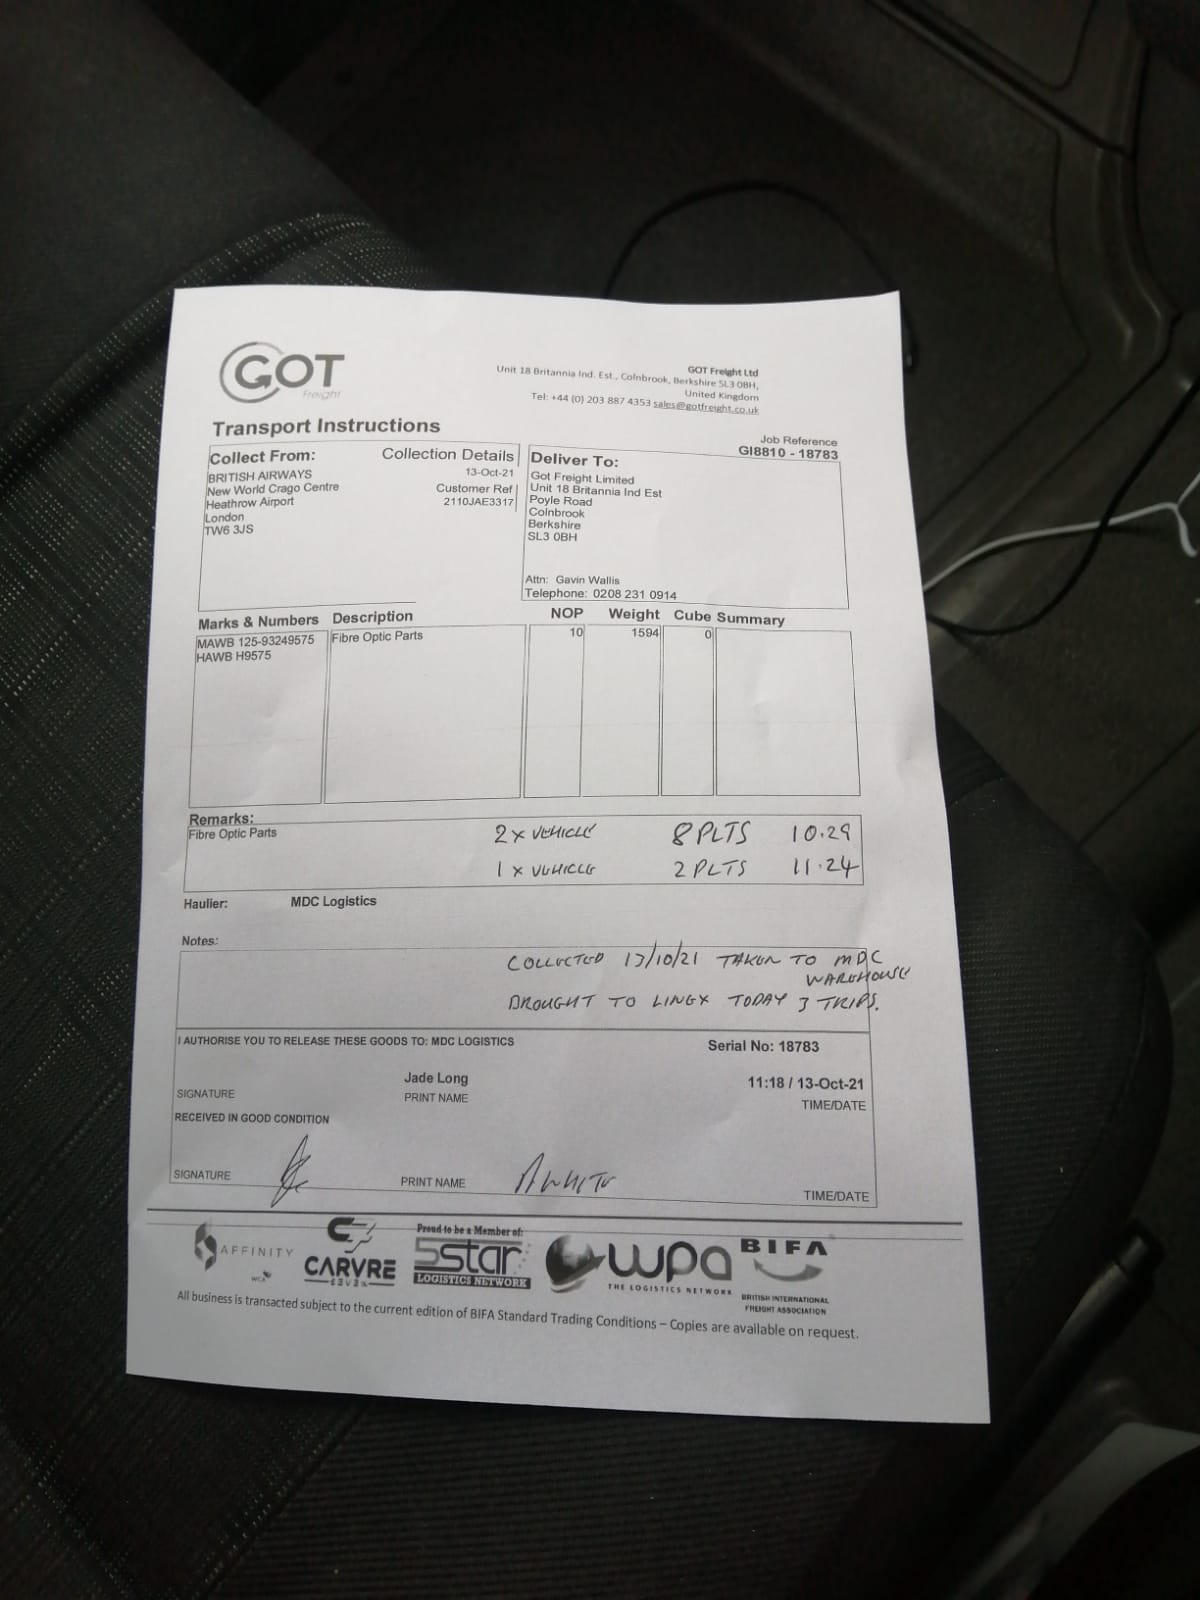 GOT
Freight
GOT Freight Ltd
Unit 18 Britannia Ind. Est., Colnbrook, Berkshire SL3 0BH,
United Kingdom
Tel: +44 (0) 203 887 4353 sales@gotfreight.co.uk
Transport Instructions
Job Reference
GI8810 - 18783
Collect From:
Collection Details
BRITISH AIRWAYS
13-Oct-21
New World Crago Centre
Customer Ref
Heathrow Airport
2110JAE3317
London
TW6 3JS
Deliver To:
Got Freight Limited
Unit 18 Britannia Ind Est
Poyle Road
Colnbrook
Berkshire
SL3 0BH
Attn: Gavin Wallis
Telephone: 0208 231 0914
Marks & Numbers Description NOP Weight Cube Summary
MAWB 125-93249575 Fibre Optic Parts 10 1594 0
HAWB H9575
Remarks:
Fibre Optic Parts
2 x VEHICLE 8 PLTS 10.29
1 x VEHICLE 2 PLTS 11.24
Haulier: MDC Logistics
Notes:
COLLECTED 13/10/21 TAKEN TO MDC
WAREHOUSE
BROUGHT TO LINGX TODAY 3 TRIPS.
I AUTHORISE YOU TO RELEASE THESE GOODS TO: MDC LOGISTICS
Serial No: 18783
Jade Long
11:18 / 13-Oct-21
SIGNATURE PRINT NAME TIME/DATE
RECEIVED IN GOOD CONDITION
SIGNATURE PRINT NAME A WHITE TIME/DATE
AFFINITY
WCA
CARVRE
SEVEN
Proud to be a Member of:
5star
LOGISTICS NETWORK
wpa
THE LOGISTICS NETWORK
BIFA
BRITISH INTERNATIONAL
FREIGHT ASSOCIATION
All business is transacted subject to the current edition of BIFA Standard Trading Conditions – Copies are available on request.